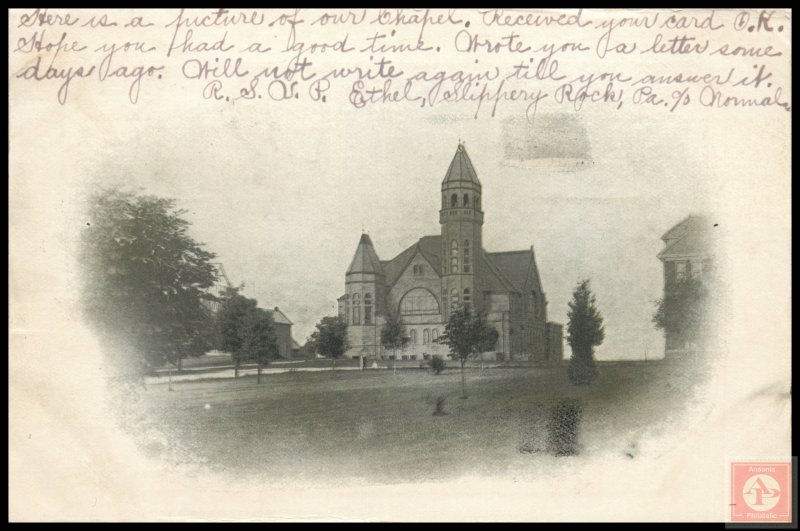 Here is a picture of our Chapel. Received your card O.K.
Hope you had a good time. Wrote you a letter some
days ago. Will not write again till you answer it.
R. S. V. P. Ethel, Slippery Rock, Pa. c/o Normal.
Ansonia
AP
Philatelic